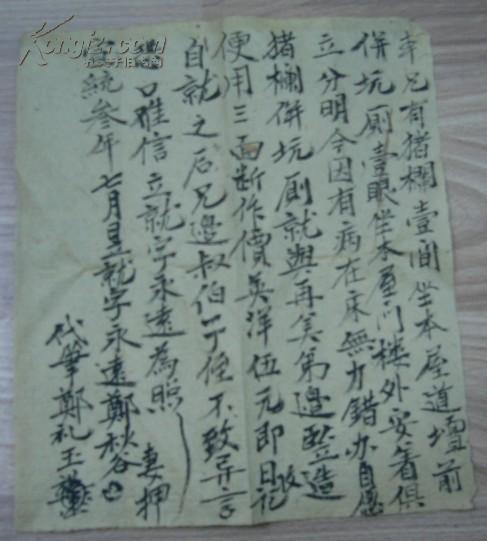 幸兄有猪欄壹间坐本屋道壇前
併坑厠壹眼坐本屋门楼外安着俱
立分明今因有病在床無力錯办自愿
猪欄併坑厠就與再美弟邊竪造
便用三面断作價英洋伍元即日收
自就之后兄邊叔伯子侄不致异言
口难信立就字永遠為照
統叁年七月日立就字永遠鄭秋谷
妻押
代筆鄭礼玉